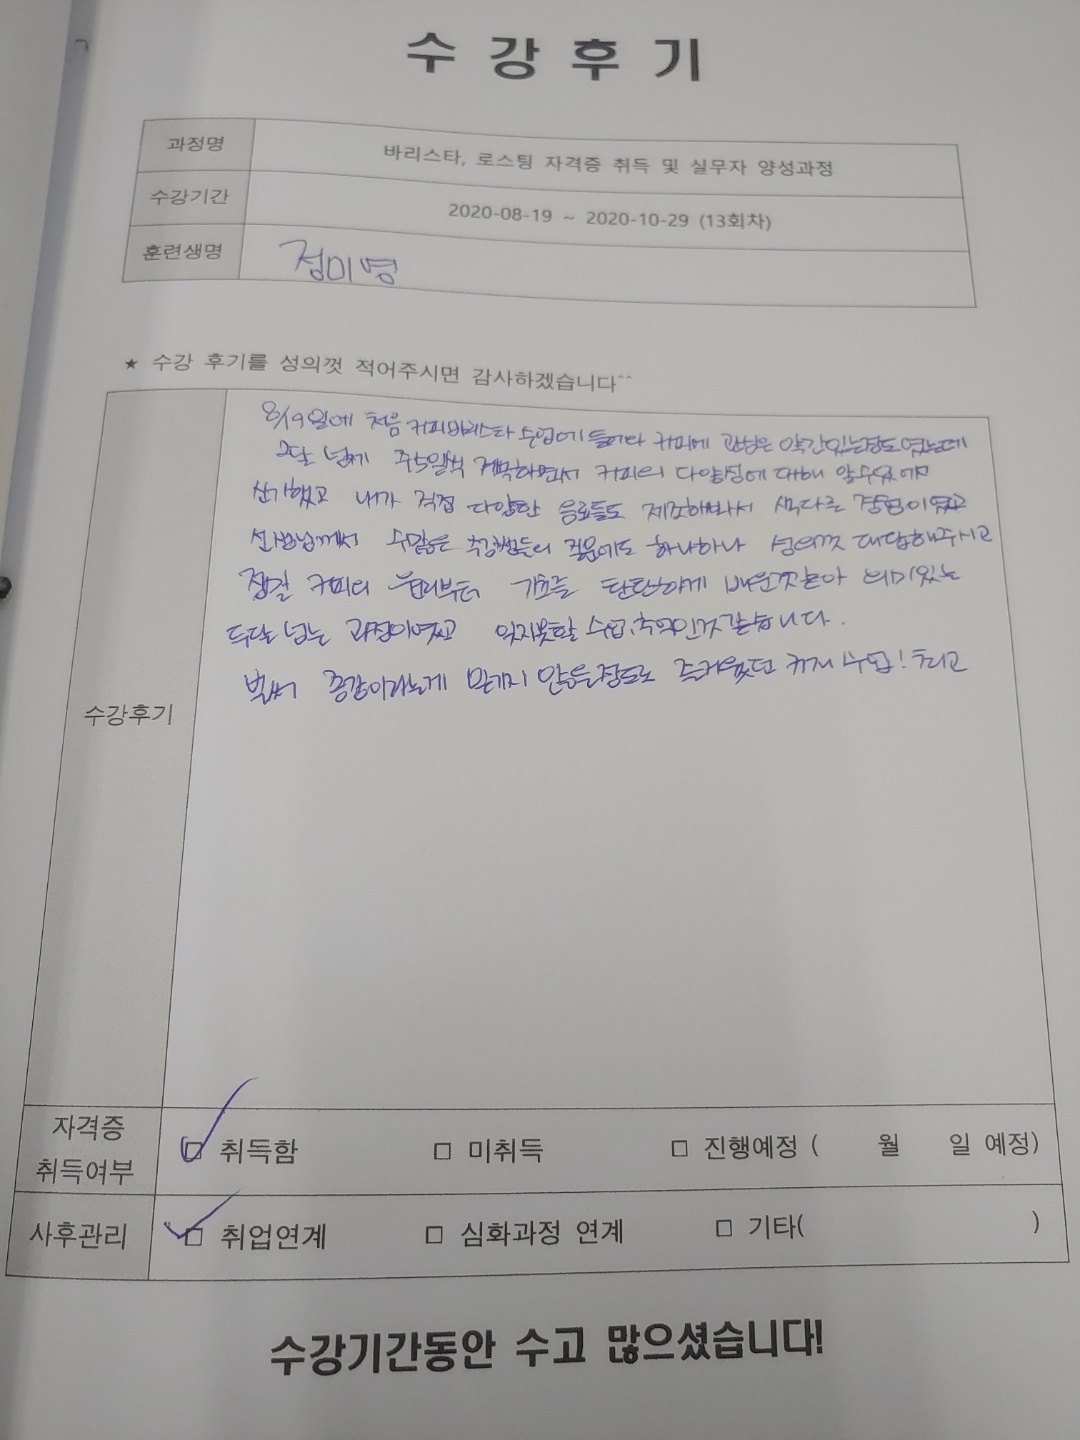 수 강 후 기
과정명 바리스타, 로스팅 자격증 취득 및 실무자 양성과정
수강기간 2020-08-19 ~ 2020-10-29 (13회차)
훈련생명 정미영
★ 수강 후기를 성의껏 적어주시면 감사하겠습니다^^
수강후기
8/19일에 처음 커피바리스타 수업에 들어와 커피에 관심은 약간있는정도였는데
2달 넘게 주5일씩 계속하면서 커피의 다양성에 대해 알수있어
신기했고 내가 직접 다양한 음료들도 제조해봐서 색다른 경험이였고
선생님께서 수많은 수강생들의 질문에도 하나하나 성의껏 대답해주시고
커피의 원리부터 기초를 탄탄하게 배운것같아 의미있는
두달 넘는 과정이였고 잊지못할 수업, 추억인것같습니다.
벌써 종강이라는게 믿기지 않을정도로 즐거웠던 커피 수업! 그리고
자격증 취득여부 □ 취득함 □ 미취득 □ 진행예정 ( 월 일 예정)
사후관리 □ 취업연계 □ 심화과정 연계 □ 기타( )
수강기간동안 수고 많으셨습니다!